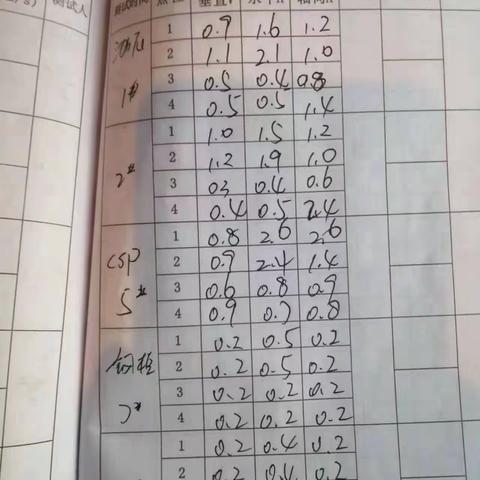 测试人
1 0.9 1.6 1.2
2 1.1 2.1 1.0
1# 3 0.5 0.4 0.8
4 0.5 0.5 1.4
1 1.0 1.5 1.2
2# 2 1.2 1.9 1.0
3 03 0.4 0.6
4 0.4 0.5 2.4
1 0.8 2.6 2.6
CSP 2 0.9 2.4 1.4
5# 3 0.6 0.8 0.9
4 0.9 0.7 0.8
1 0.2 0.5 0.2
2 0.2 0.5 0.2
3 0.2 0.2 0.2
4 0.2 0.2 0.2
1 0.2 0.4 0.2
2 0.2 0.4 0.2